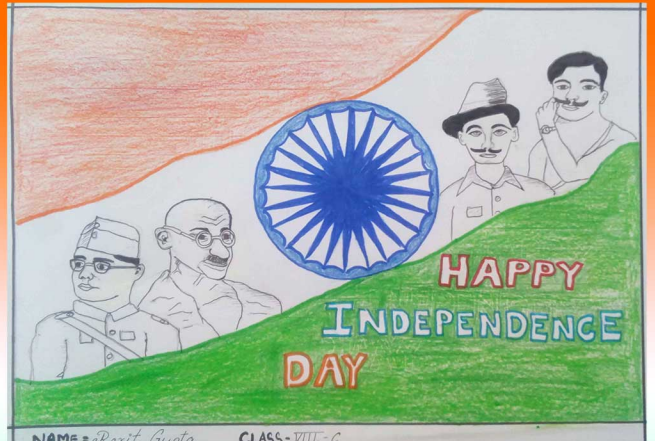 HAPPY
INDEPENDENCE
DAY
NAME = Gupta CLASS - VIII - C